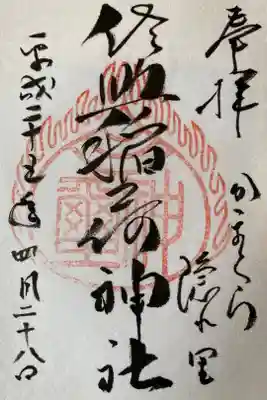 奉拝
かまくら
隠れ里
佐助稲荷神社
平成二十五年四月二十八日